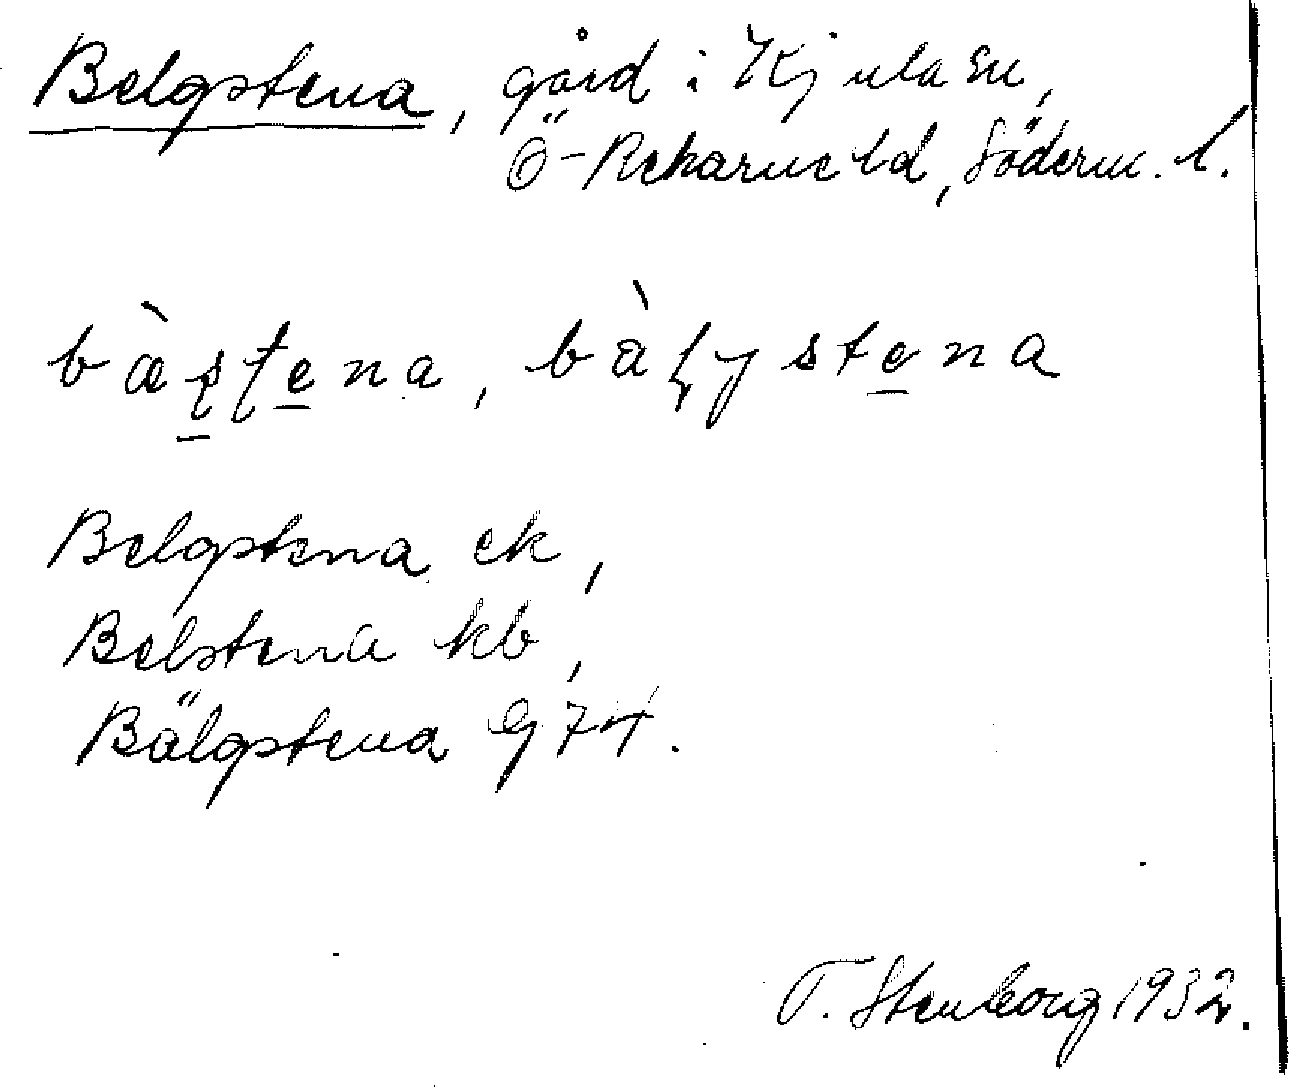 Belgstena, gård i Kjula sn,
Ö-Rekarne hd, Söderm. l.
bæ̀ʂʈena, bàɭystena
Belgstena ek,
Belstena kb,
Bälgstena G 74.
T. Stenborg 1932.